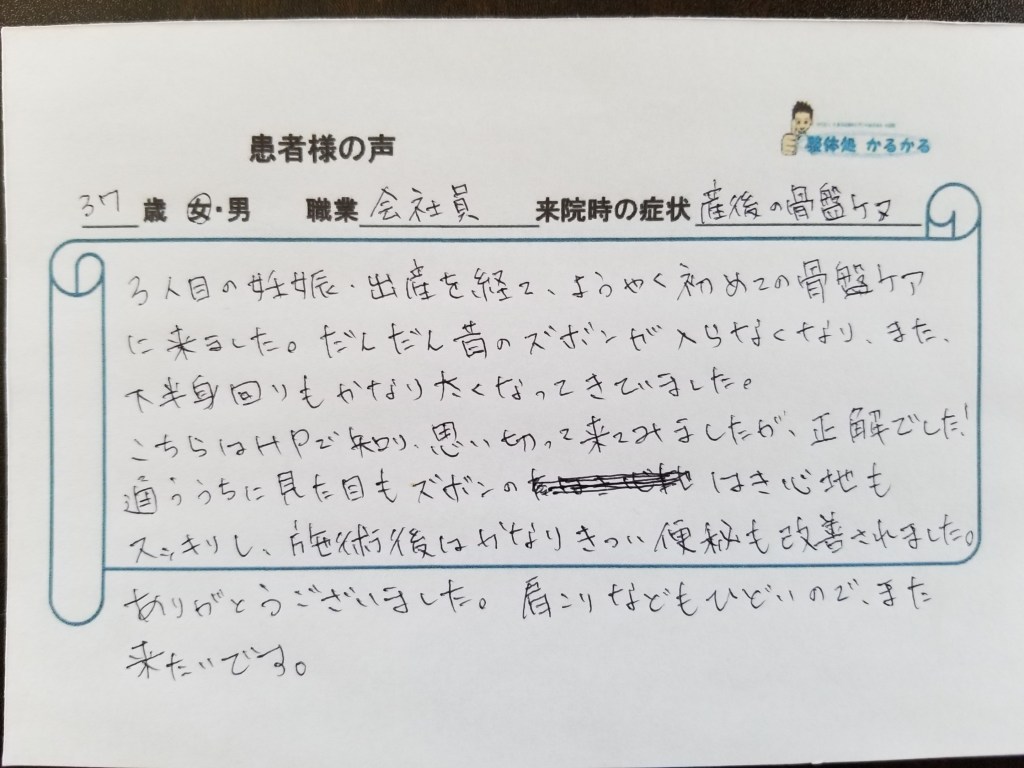 患者様の声
整体処 かるかる
37 歳 女・男 職業 会社員 来院時の症状 産後の骨盤ケア
3人目の妊娠・出産を経て、ようやく初めての骨盤ケア
に来ました。だんだん昔のズボンが入らなくなり、また、
下半身回りもかなり太くなってきていました。
こちらはHPで知り、思い切って来てみましたが、正解でした!
通ううちに見た目もズボンの はき心地も
スッキリし、施術後はかなりきつい便秘も改善されました。
ありがとうございました。肩こりなどもひどいので、また
来たいです。